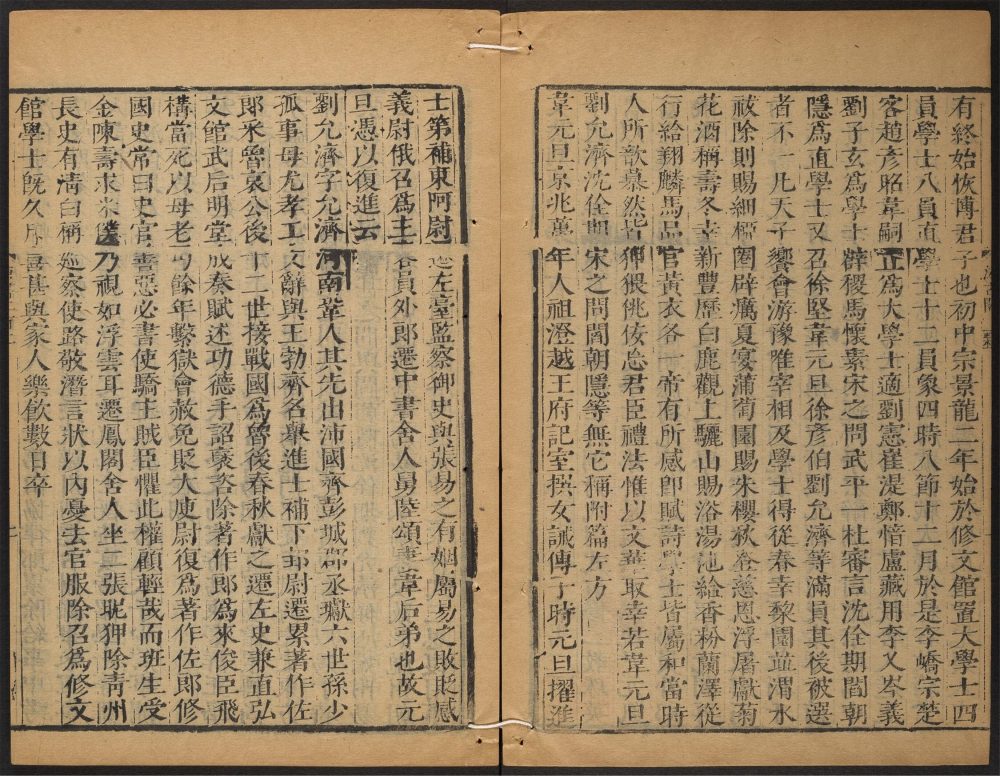 有終始恢博君子也初中宗景龍二年始於修文館置大學士四
員學士八員直學士十二員象四時八節十二月於是李嶠宗楚
客趙彥昭韋嗣立爲大學士適劉憲崔湜鄭愔盧藏用李乂岑羲
劉子玄爲學士薛稷馬懷素宋之問武平一杜審言沈佺期閻朝
隱爲直學士又召徐堅韋元旦徐彥伯劉允濟等滿員其後被選
者不一凡天子饗會游豫唯宰相及學士得從春幸棃園並渭水
祓除則賜細柳圈辟癘夏宴蒲萄園賜朱櫻秋登慈恩浮屠獻菊
花酒稱壽冬幸新豐歷白鹿觀上驪山賜浴湯池給香粉蘭澤從
行給翔麟馬品官黃衣各一帝有所感卽賦詩學士皆屬和當時
人所歆慕然皆狎猥佻佞忘君臣禮法惟以文華取幸若韋元旦
劉允濟沈佺期宋之問閻朝隱等無它稱附篇左方
韋元旦京兆萬年人祖澄越王府記室撰女誡傳于時元旦擢進
士第補東阿尉遷左臺監察御史與張易之有姻屬易之敗貶感
義尉俄召爲主客員外郎遷中書舍人舅陸頌妻韋后弟也故元
旦憑以復進云
劉允濟字允濟河南鞏人其先出沛國齊彭城郡丞瓛六世孫少
孤事母尤孝工文辭與王勃齊名舉進士補下邽尉遷累著作佐
郎采魯哀公後十二世接戰國爲魯後春秋獻之遷左史兼直弘
文館武后明堂成奏賦述功德手詔襃咨除著作郎爲來俊臣飛
構當死以母老丐餘年繫獄會赦免貶大庾尉復爲著作佐郎修
國史常曰史官善惡必書使驕主賊臣懼此權顧輕哉而班生受
金陳壽求米僕乃視如浮雲耳遷鳳閣舍人坐二張昵狎除青州
長史有清白稱巡察使路敬潛言狀以內憂去官服除召爲修文
館學士旣久斥喜甚與家人樂飲數日卒